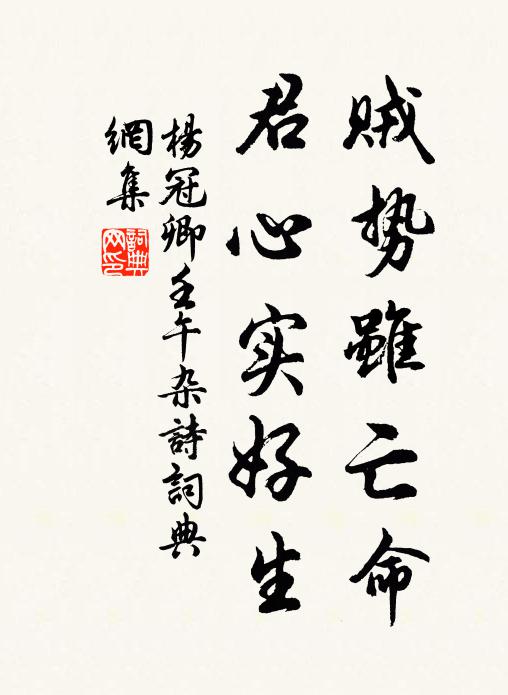 贼势虽亡命
君心实好生
楊冠卿壬午杂詩詞典
網集
詞典网印